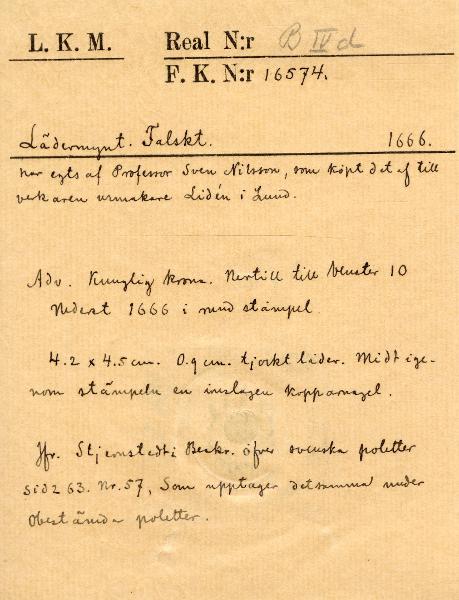 L. K. M. Real N:r B IV d
F. K. N:r 16574.
Lädermynt. Falskt. 1666.
har egts af Professor Sven Nilsson, som köpt det af till
verkaren urmakare Lidén i Lund.
Adv. Kunglig krona. Nertill till venster 10
Nederst 1666 i rund stämpel.
4.2 x 4.5 cm. 0.9 cm. tjockt läder. Midt ige-
nom stämpeln en inslagen kopparnagel.
Jfr. Stjernstedts Beskr. öfver svenska poletter
Sid 263. Nr. 57, Som upptager detsamma under
Obestämda poletter.